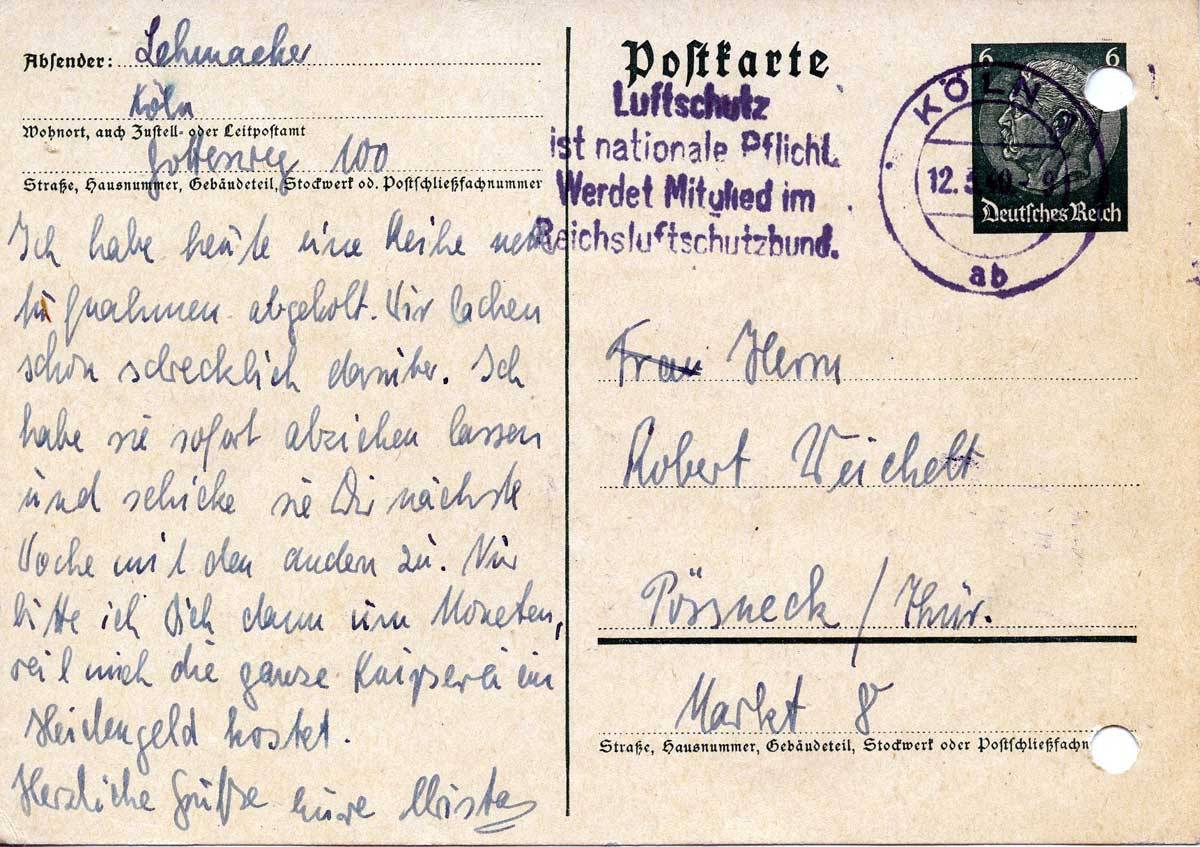 Absender: Lehmacher
Köln
Wohnort, auch Zustell- oder Leitpostamt
Gottesweg 100
Straße, Hausnummer, Gebäudeteil, Stockwerk od. Postschließfachnummer
Ich habe heute eine Reihe
abgeholt. Wir lachen
schon schrecklich darüber. Ich
habe sie sofort abziehen lassen
und schicke sie Dir nächste
Woche mit den andern zu. Nur
bitte ich Dich dann um Moneten,
weil mich die ganze Knipserei ein
Heidengeld kostet.
Herzliche Grüße eure
Postkarte
Luftschutz
ist nationale Pflicht.
Werdet Mitglied im
Reichsluftschutzbund.
6 6
KÖLN
12. 40 - 9
Deutsches Reich
ab
Frau Herrn
Robert Weichelt
Pössneck / Thür.
Markt 8
Straße, Hausnummer, Gebäudeteil, Stockwerk oder Postschließfachn